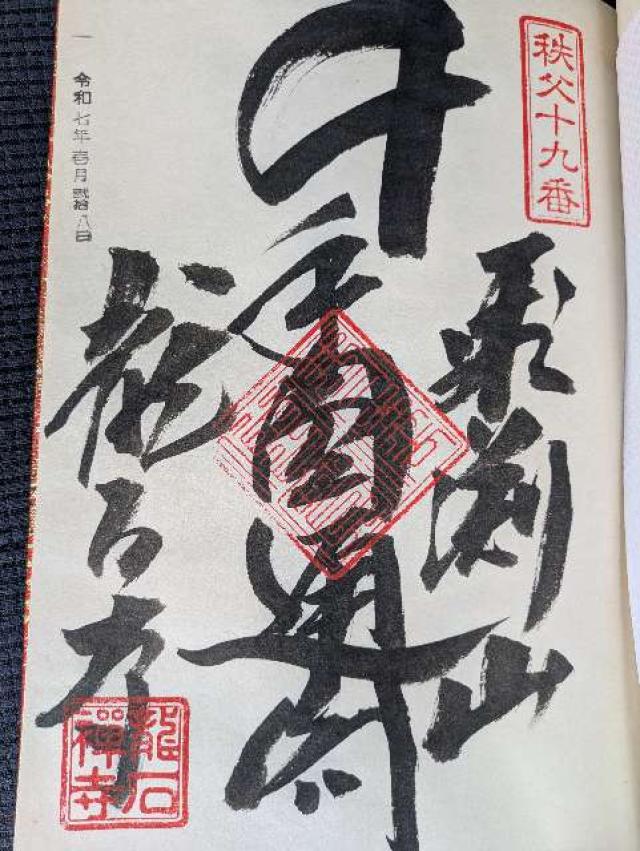 秩父十九番
飛渕山
千手圓通閣
龍石寺
龍石禪寺
令和七年壱月弐拾八日